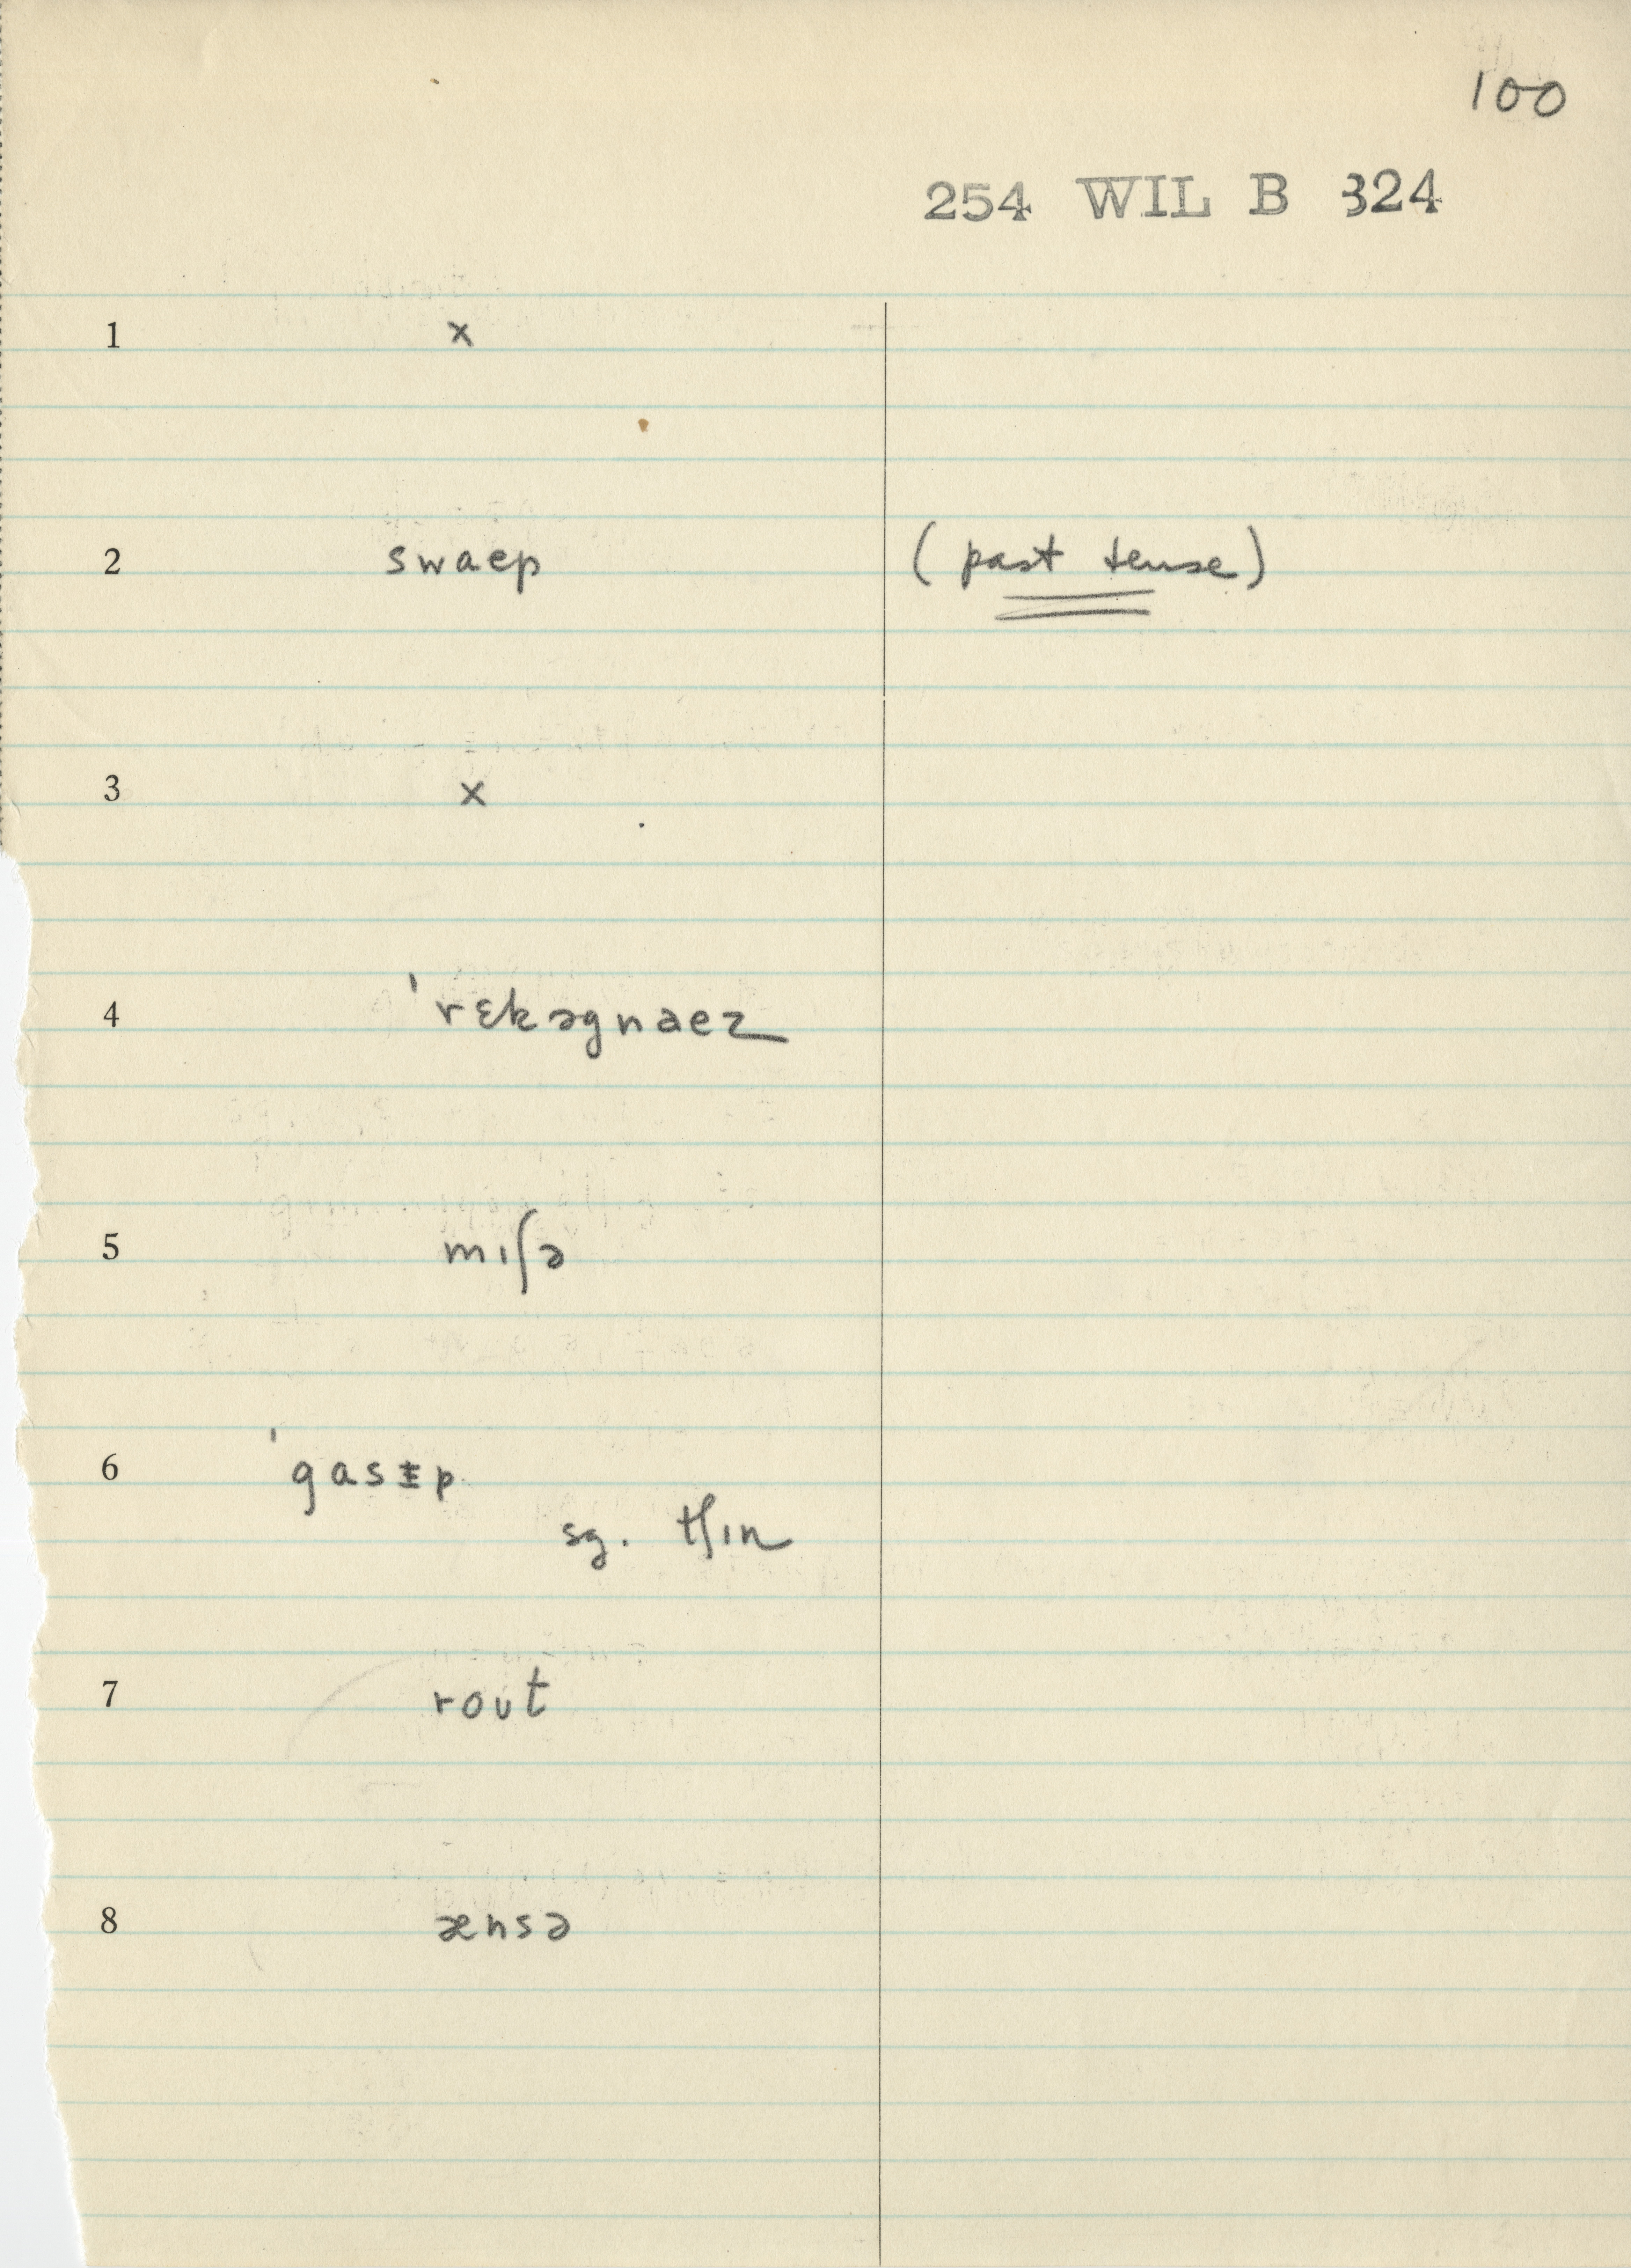 100
254 WIL B 324
1 x
2 swaep (past tense)
3 x
4 ˈrɛkəgnaez
5 mɪʃə
6 ˈgasɨp
sg. tʃɪn
7 roʊt
8 ænsə